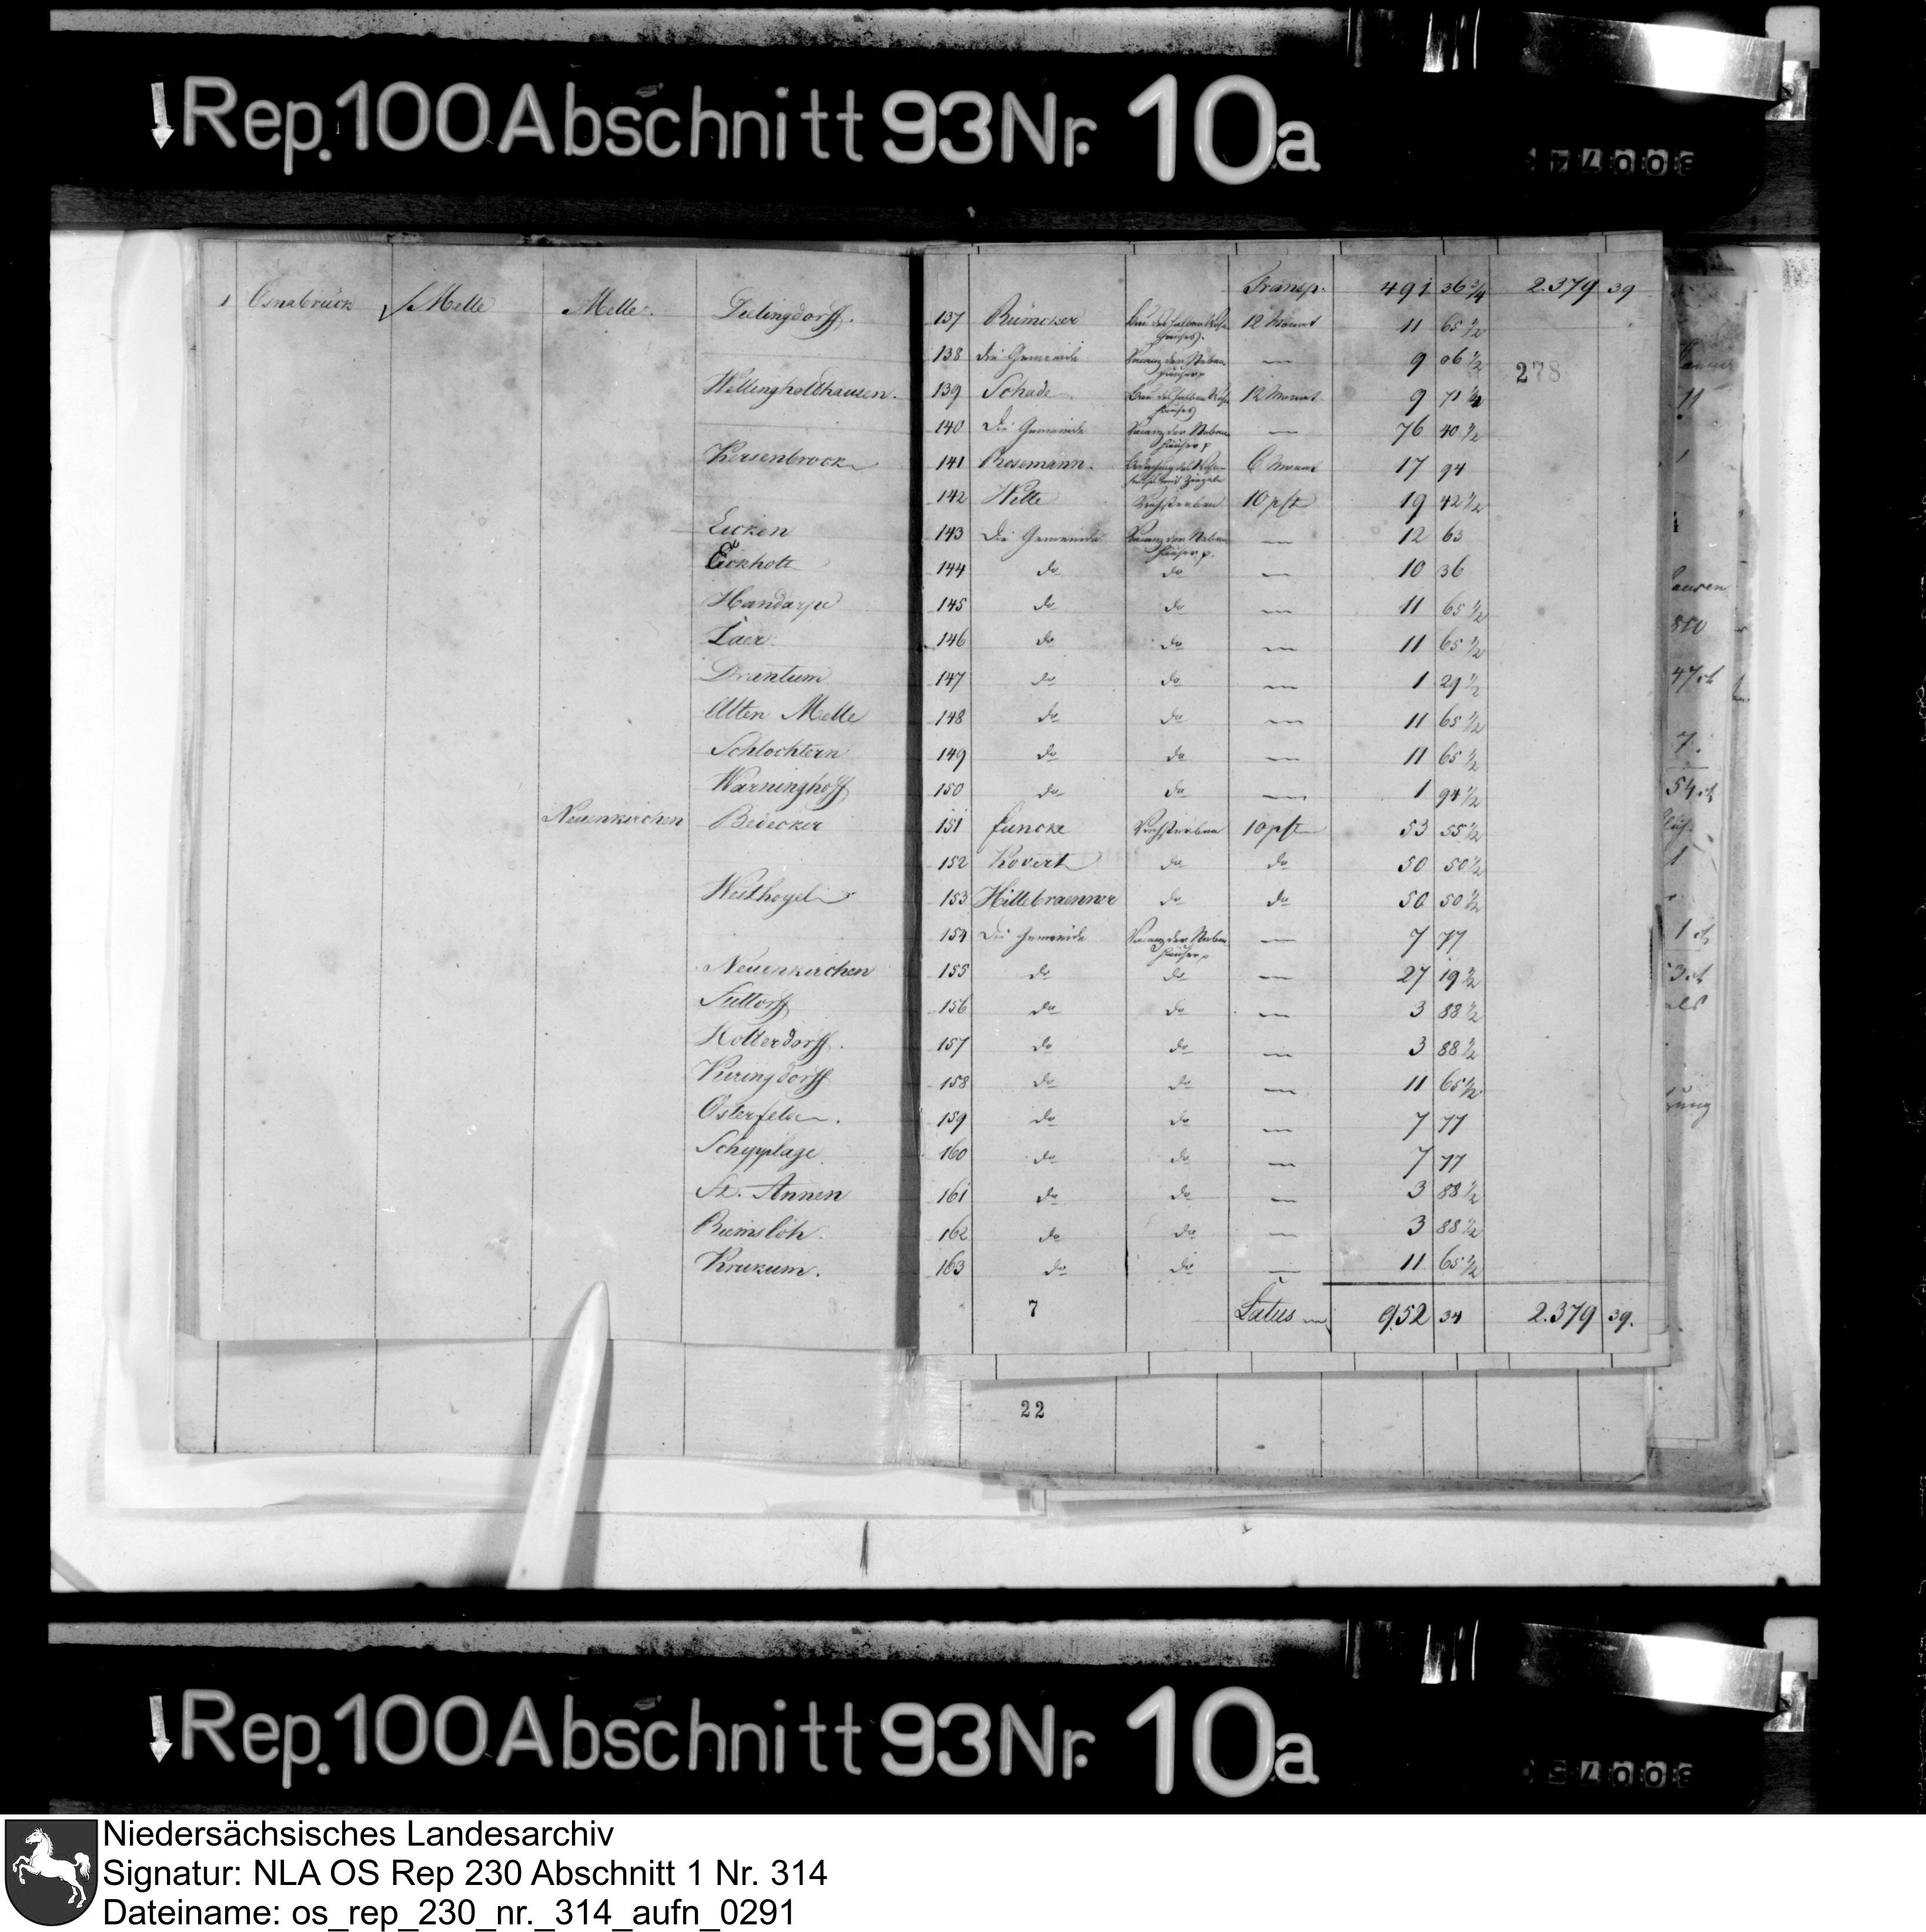 Rep. 100 Abschnitt 93 Nr. 10a
Transp. 491 36 3/4 2.379 39
1 Osnabrück Melle Melle. Dielingdorff. 137 12 Monat 11 65 1/2
138 die Gemeinde Vacanz der Neben häuser p — 9 06 1/2
278
Wellingholthausen. 139 Schade 12 Monat 9 71 1/4
140 Die Gemeinde Vacanz der Neben häuser p — 76 40 1/2
Kersenbrock 141 Rosemann. 6 Monat 17 94
142 Witte Viehsterben 10 pft 19 42 1/2
Eicken 143 Die Gemeinde Vacanz der Neben häuser p. — 12 63
Eickholt 144 do do — 10 36
Handarpe 145 do do — 11 65 1/2
Laer 146 do do — 11 65 1/2
Drantum 147 do do — 1 29 1/2
Alten Melle 148 do do — 11 65 1/2
Schlochtern 149 do do — 11 65 1/2
Warninghoff 150 do do — 1 94 1/2
Neuenkirchen Redecker 151 Funcke Viehsterben 10 pft 53 55 1/2
152 Kovert do do 50 50 1/2
Westhoyel 153 Hillebraenner do do 50 50 1/2
154 Die Gemeinde Vacanz der Neben häuser p — 7 77
Neuenkirchen 155 do do — 27 19 1/2
Suttorff 156 do do — 3 88 1/2
Holterdorff. 157 do do — 3 88 1/2
Küringdorff 158 do do — 11 65 1/2
Osterfelde. 159 do do — 7 77
Schypplage 160 do do — 7 77
St. Annen 161 do do — 3 88 1/2
Riemsloh. 162 do do — 3 88 1/2
Krukum. 163 do do — 11 65 1/2
7 Latus 952 34 2.379 39.
22
Rep. 100 Abschnitt 93 Nr. 10a
Niedersächsisches Landesarchiv
Signatur: NLA OS Rep 230 Abschnitt 1 Nr. 314
Dateiname: os_rep_230_nr._314_aufn_0291